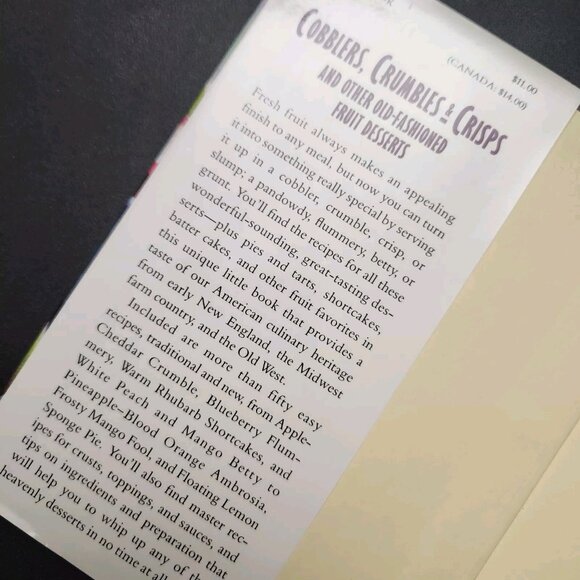 $11.00
(CANADA: $14.00)
COBBLERS, CRUMBLES & CRISPS
AND OTHER OLD-FASHIONED
FRUIT DESSERTS
Fresh fruit always makes an appealing
finish to any meal, but now you can turn
it into something really special by serving
it up in a cobbler, crumble, crisp, or
slump; a pandowdy, flummery, betty, or
grunt. You'll find the recipes for all these
wonderful-sounding, great-tasting des-
serts—plus pies and tarts, shortcakes,
batter cakes, and other fruit favorites in
this unique little book that provides a
taste of our American culinary heritage
from early New England, the Midwest
farm country, and the Old West.
Included are more than fifty easy
recipes, traditional and new, from Apple-
Cheddar Crumble, Blueberry Flum-
mery, Warm Rhubarb Shortcakes, and
White Peach and Mango Betty to
Pineapple–Blood Orange Ambrosia,
Frosty Mango Fool, and Floating Lemon
Sponge Pie. You'll also find master rec-
ipes for crusts, toppings, and sauces, and
tips on ingredients and preparation that
will help you to whip up any of the
heavenly desserts in no time at all